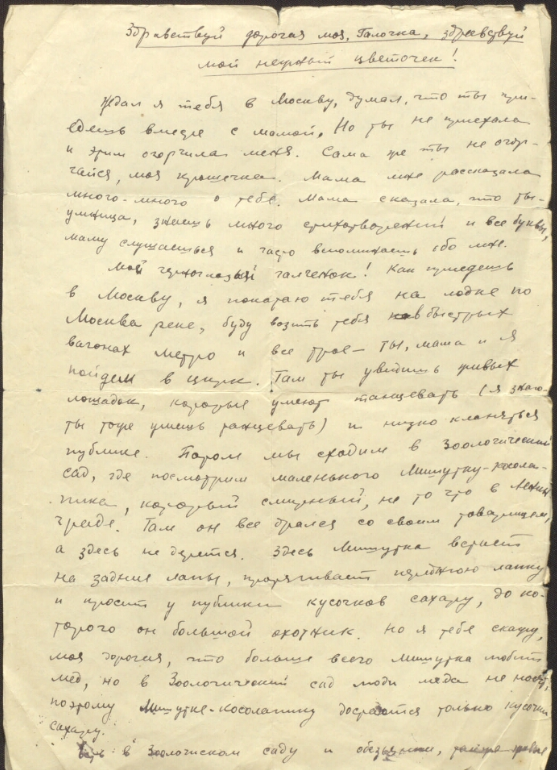 Здравствуй дорогая моя, Галочка, здравствуй
мой нежный цветочек!
Ждал я тебя в Москву, думал, что ты при-
едешь вместе с мамой. Но ты не приехала
и этим огорчила меня. Сама же ты не огор-
чайся, моя крошечка. Мама мне рассказала
много-много о тебе. Мама сказала, что ты-
умница, знаешь много стихотворений и все буквы,
маму слушаешься и часто вспоминаешь обо мне.
Мой галчонок! Как приедешь
в Москву, я покатаю тебя на лодке по
Москва реке, буду возить тебя в быстрых
вагонах метро и все трое- ты, мама и я
пойдем в цирк. Там ты увидишь живых
лошадок, которые умеют танцевать (я знаю
ты тоже умеешь танцевать) и низко кланяться
публике. Потом мы сходим в Зоологический
сад, где посмотрим маленького Мишутку-косола-
пика, который смирный, не то что в Ленин
граде. Там он все дрался со своим товарищем,
а здесь не дерется. Здесь Мишутка встает
на задние лапы, протягивает переднюю лапку
и просит у публики кусочков сахару, до ко-
торого он большой охотник. Но я тебе скажу,
моя дорогая, что больше всего Мишутка любит
мёд, но в Зоологический сад люди меда не носят,
поэтому Мишутке-косолапику достается только кусочки
сахару.
в Зоологиском саду и обезьянки,